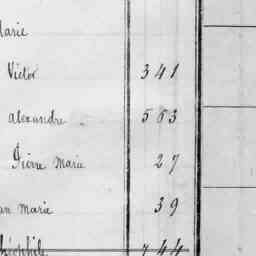 Marie
Victor 341
alexandre 563
Pierre Marie 27
an Marie 39
héophile 744